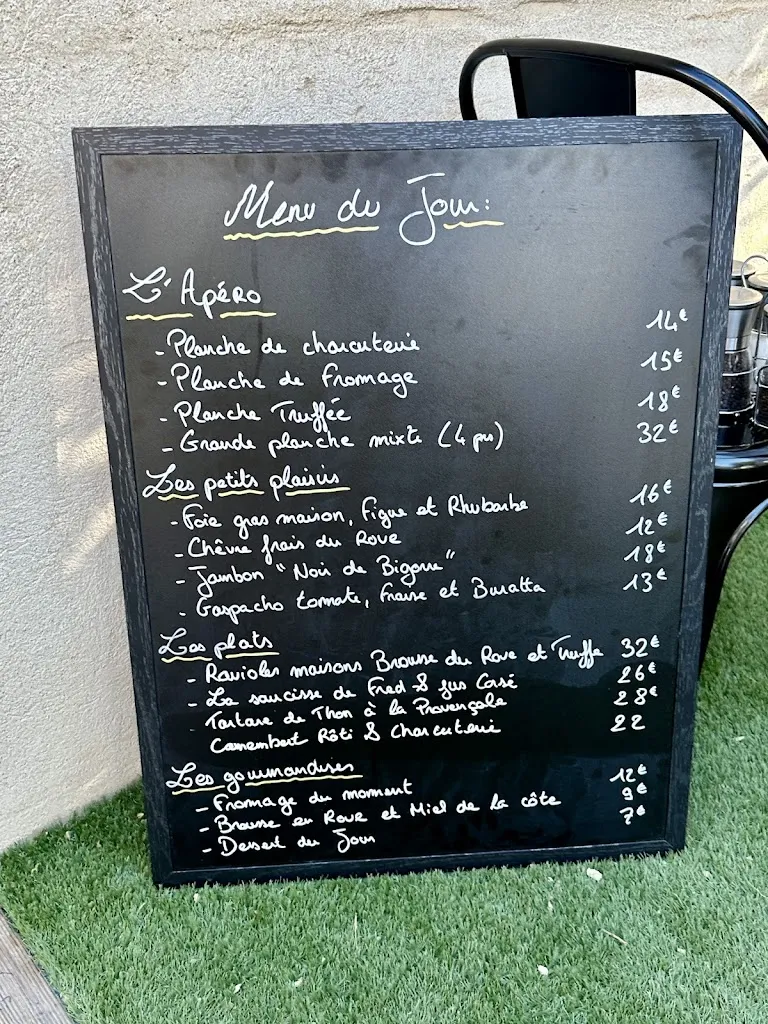 Menu du Jour:
L'Apéro
- Planche de charcuterie 14€
- Planche de Fromage 15€
- Planche Truffée 18€
- Grande planche mixte (4 prs) 32€
Les petits plaisirs
- Foie gras maison, Figue et Rhubarbe 16€
- Chèvre frais du Rove 12€
- Jambon "Noir de Bigorre" 18€
- Gaspacho tomate, Fraise et Buratta 13€
Les plats
- Ravioles maisons Brousse du Rove et Truffe 32€
- La saucisse de Fred & jus Corsé 26€
Tartare de Thon à la Provençale 28€
Camembert Rôti & Charcuterie 22
Les gourmandises
- Fromage du moment 12€
- Brousse du Rove et Miel de la côte 9€
- Dessert du Jour 7€